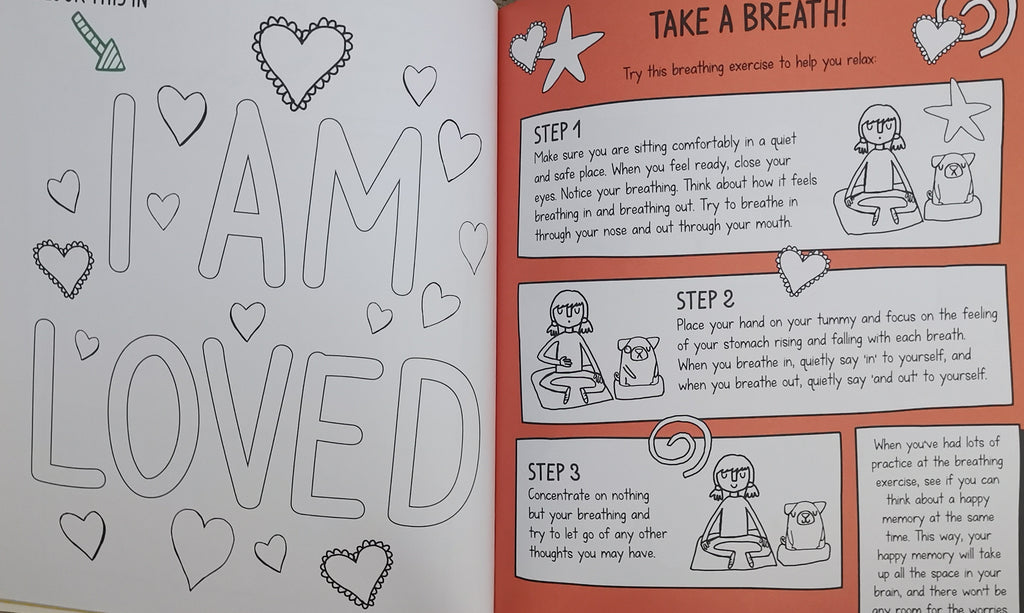 THIS IN
I AM
LOVED
TAKE A BREATH!
Try this breathing exercise to help you relax:
STEP 1
Make sure you are sitting comfortably in a quiet
and safe place. When you feel ready, close your
eyes. Notice your breathing. Think about how it feels
breathing in and breathing out. Try to breathe in
through your nose and out through your mouth.
STEP 2
Place your hand on your tummy and focus on the feeling
of your stomach rising and falling with each breath.
When you breathe in, quietly say 'in' to yourself, and
when you breathe out, quietly say 'and out' to yourself.
STEP 3
Concentrate on nothing
but your breathing and
try to let go of any other
thoughts you may have.
When you've had lots of
practice at the breathing
exercise, see if you can
think about a happy
memory at the same
time. This way, your
happy memory will take
up all the space in your
brain, and there won't be
any room for the worries